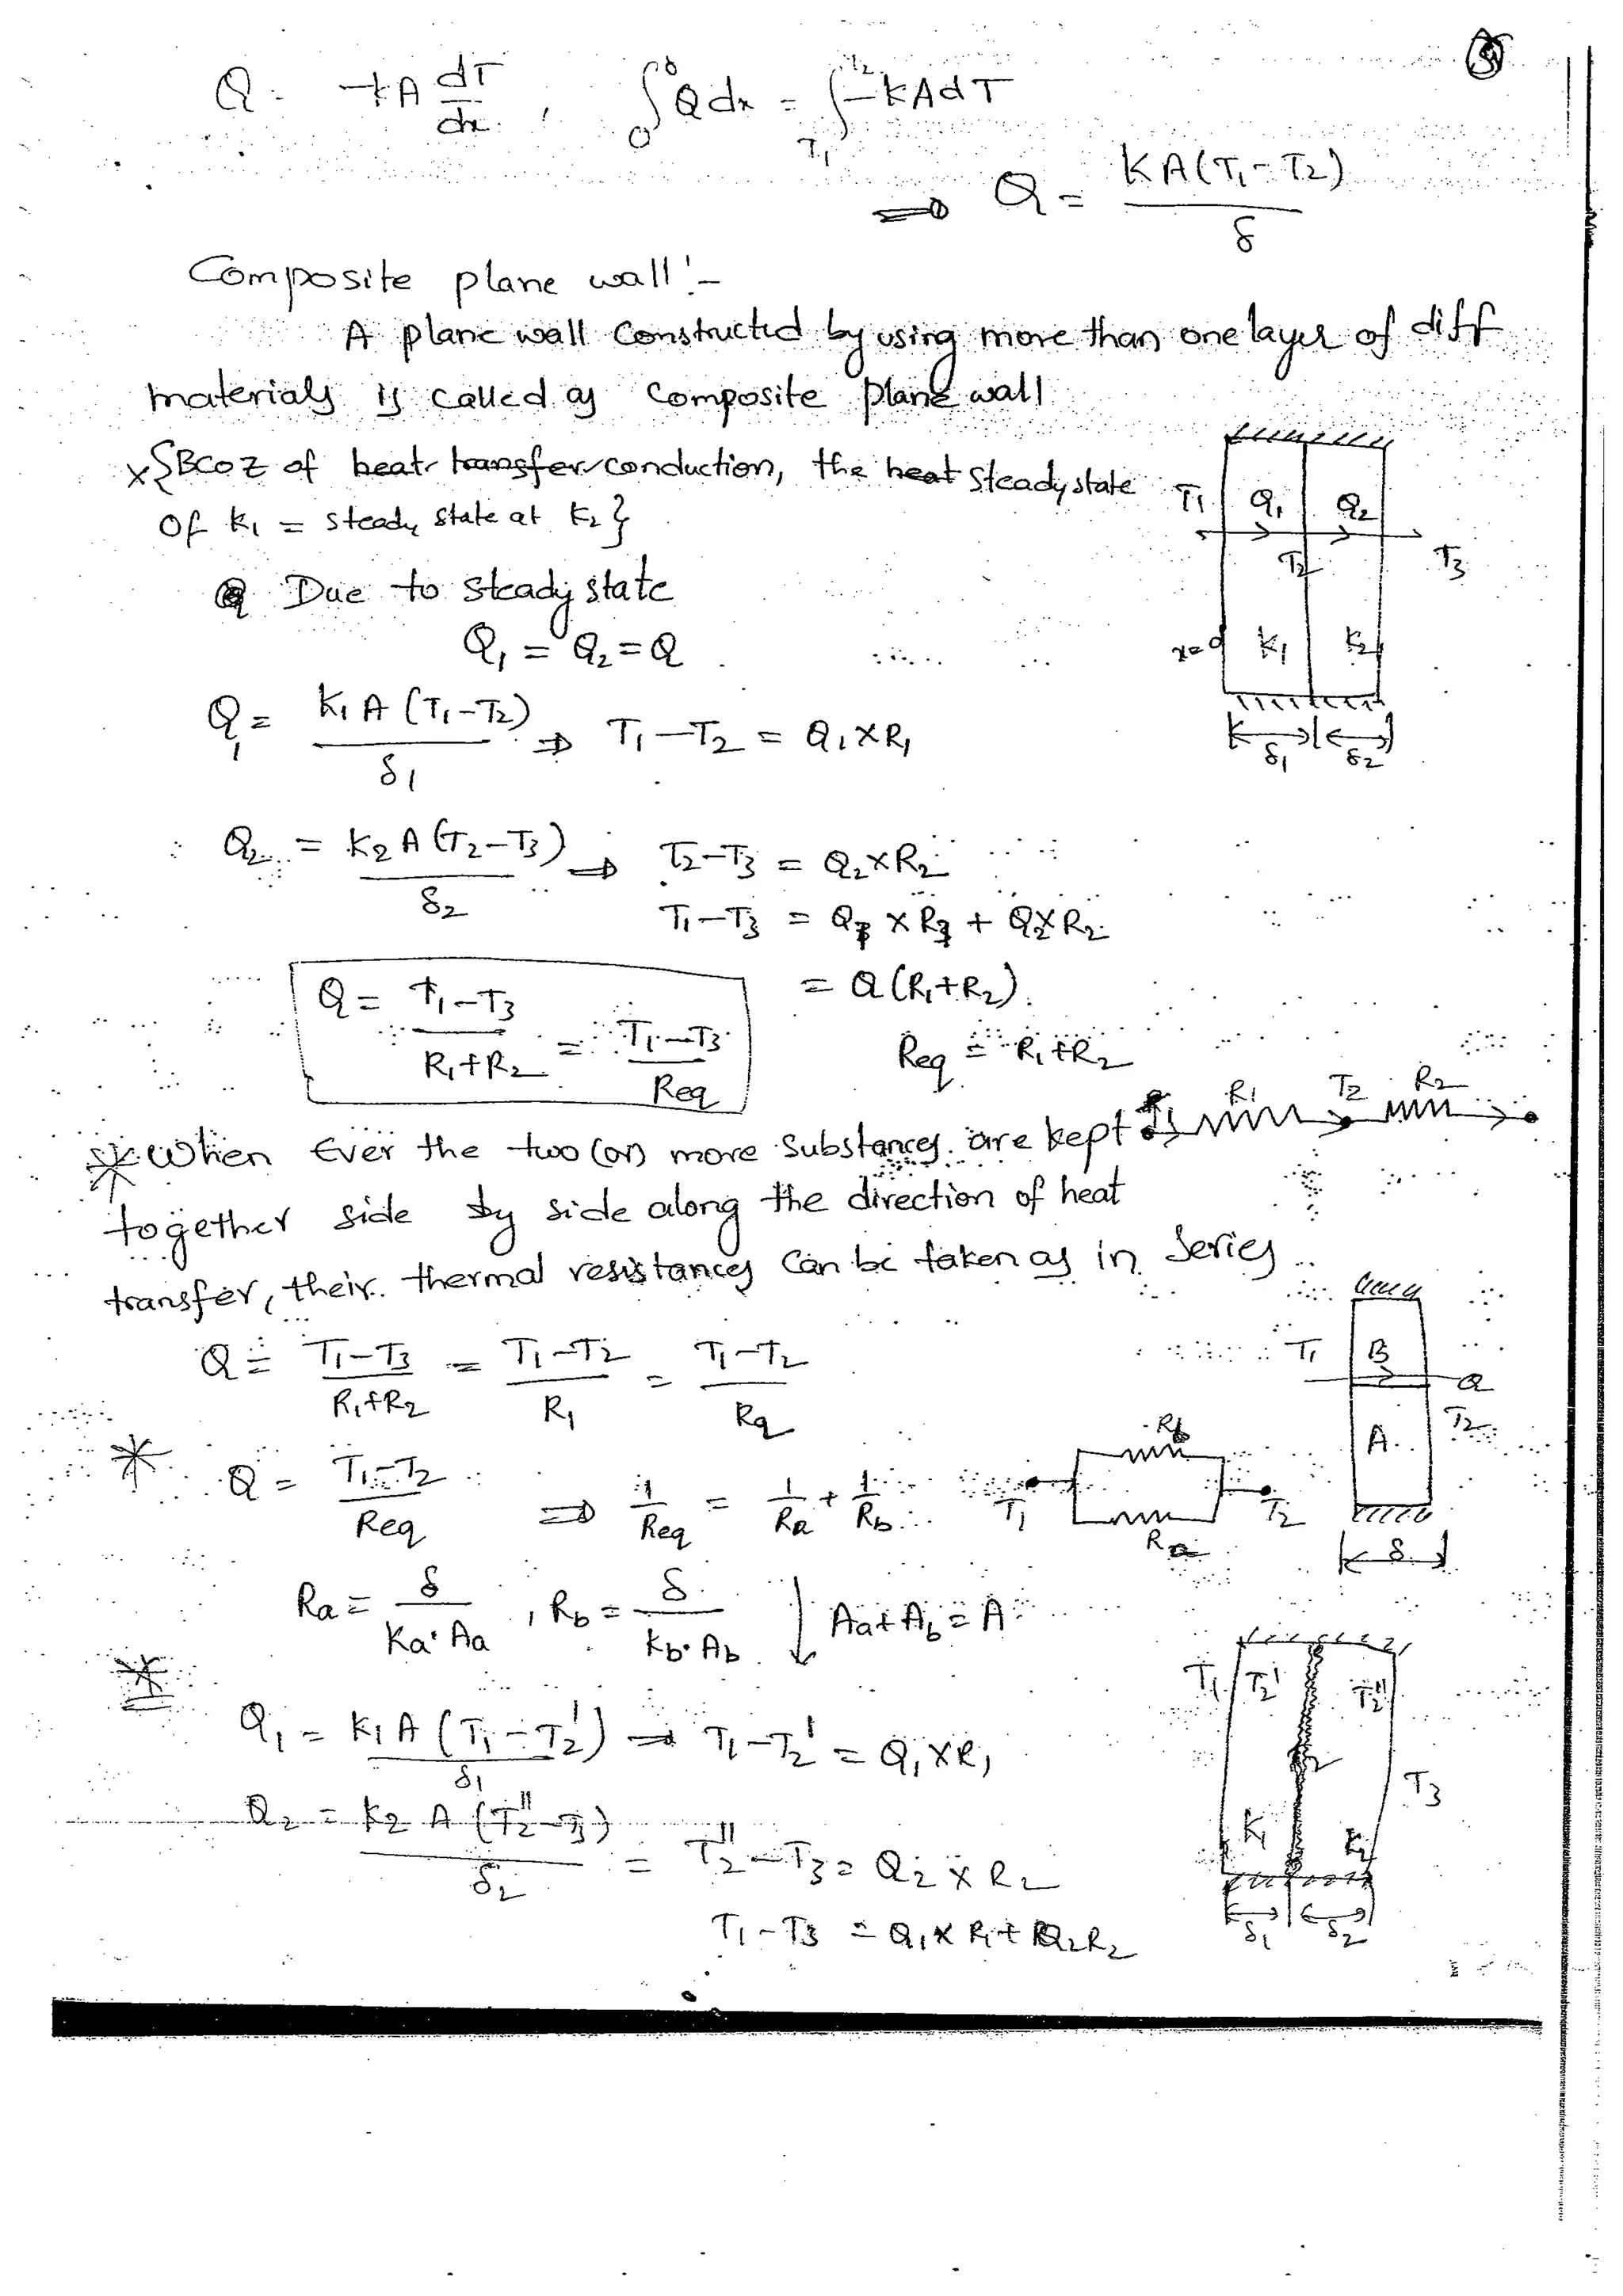 Q = -kA dT/dx , ∫₀^δ Q dx = ∫_T₁^T₂ -KAdT
⇒ Q = KA(T₁-T₂)/δ
Composite plane wall:-
A plane wall constructed by using more than one layer of diff
materials is called as composite plane wall
x{Bcoz of heat transfer conduction, the heat steady state
of k₁ = steady state at k₂}
Due to steady state
Q₁ = Q₂ = Q
T₁ Q₁ Q₂
T₂ T₃
x=0 k₁ k₂
δ₁ δ₂
Q₁ = K₁A(T₁-T₂)/δ₁ ⇒ T₁-T₂ = Q₁×R₁
Q₂ = K₂A(T₂-T₃)/δ₂ ⇒ T₂-T₃ = Q₂×R₂
T₁-T₃ = Q₁×R₁ + Q₂×R₂
= Q(R₁+R₂)
Q = T₁-T₃/R₁+R₂ = T₁-T₃/Req
Req = R₁+R₂
R₁ T₂ R₂
* When Ever the two (or) more substances are kept
together side by side along the direction of heat
transfer, their thermal resistances can be taken as in series
Q = T₁-T₃/R₁+R₂ = T₁-T₂/R₁ = T₁-T₂/Rq
T₁ B Q
A T₂
δ
* Q = T₁-T₂/Req ⇒ 1/Req = 1/Ra + 1/Rb
Rb
T₁ T₂
Ra
Ra = δ/Ka·Aa , Rb = δ/Kb·Ab ↓ Aa+Ab = A
* Q₁ = K₁A(T₁-T₂')/δ₁ ⇒ T₁-T₂' = Q₁×R₁
Q₂ = K₂A(T₂''-T₃)/δ₂ = T₂''-T₃ = Q₂×R₂
T₁-T₃ = Q₁×R₁+Q₂R₂
T₁ T₂' T₂''
T₃
K₁ K₂
δ₁ δ₂